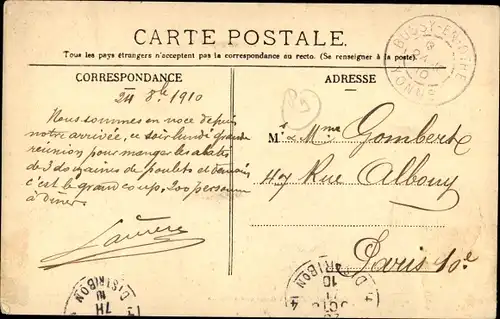 CARTE POSTALE.
Tous les pays étrangers n'acceptent pas la correspondance au recto. (Se renseigner à la poste).
CORRESPONDANCE
ADRESSE
24 8bre 1910
Nous sommes en noce depuis
notre arrivée, ce soir lundi grande
réunion pour manger les abats
de 3 douzaines de poulets et
c'est le grand coup, 200 personnes
à diner
Mr & Mme Gombert
47 Rue Albouy
Paris 10e
BUSSY-EN-OTHE
YONNE
DISTRIBON
7H
DISTRIBON
10